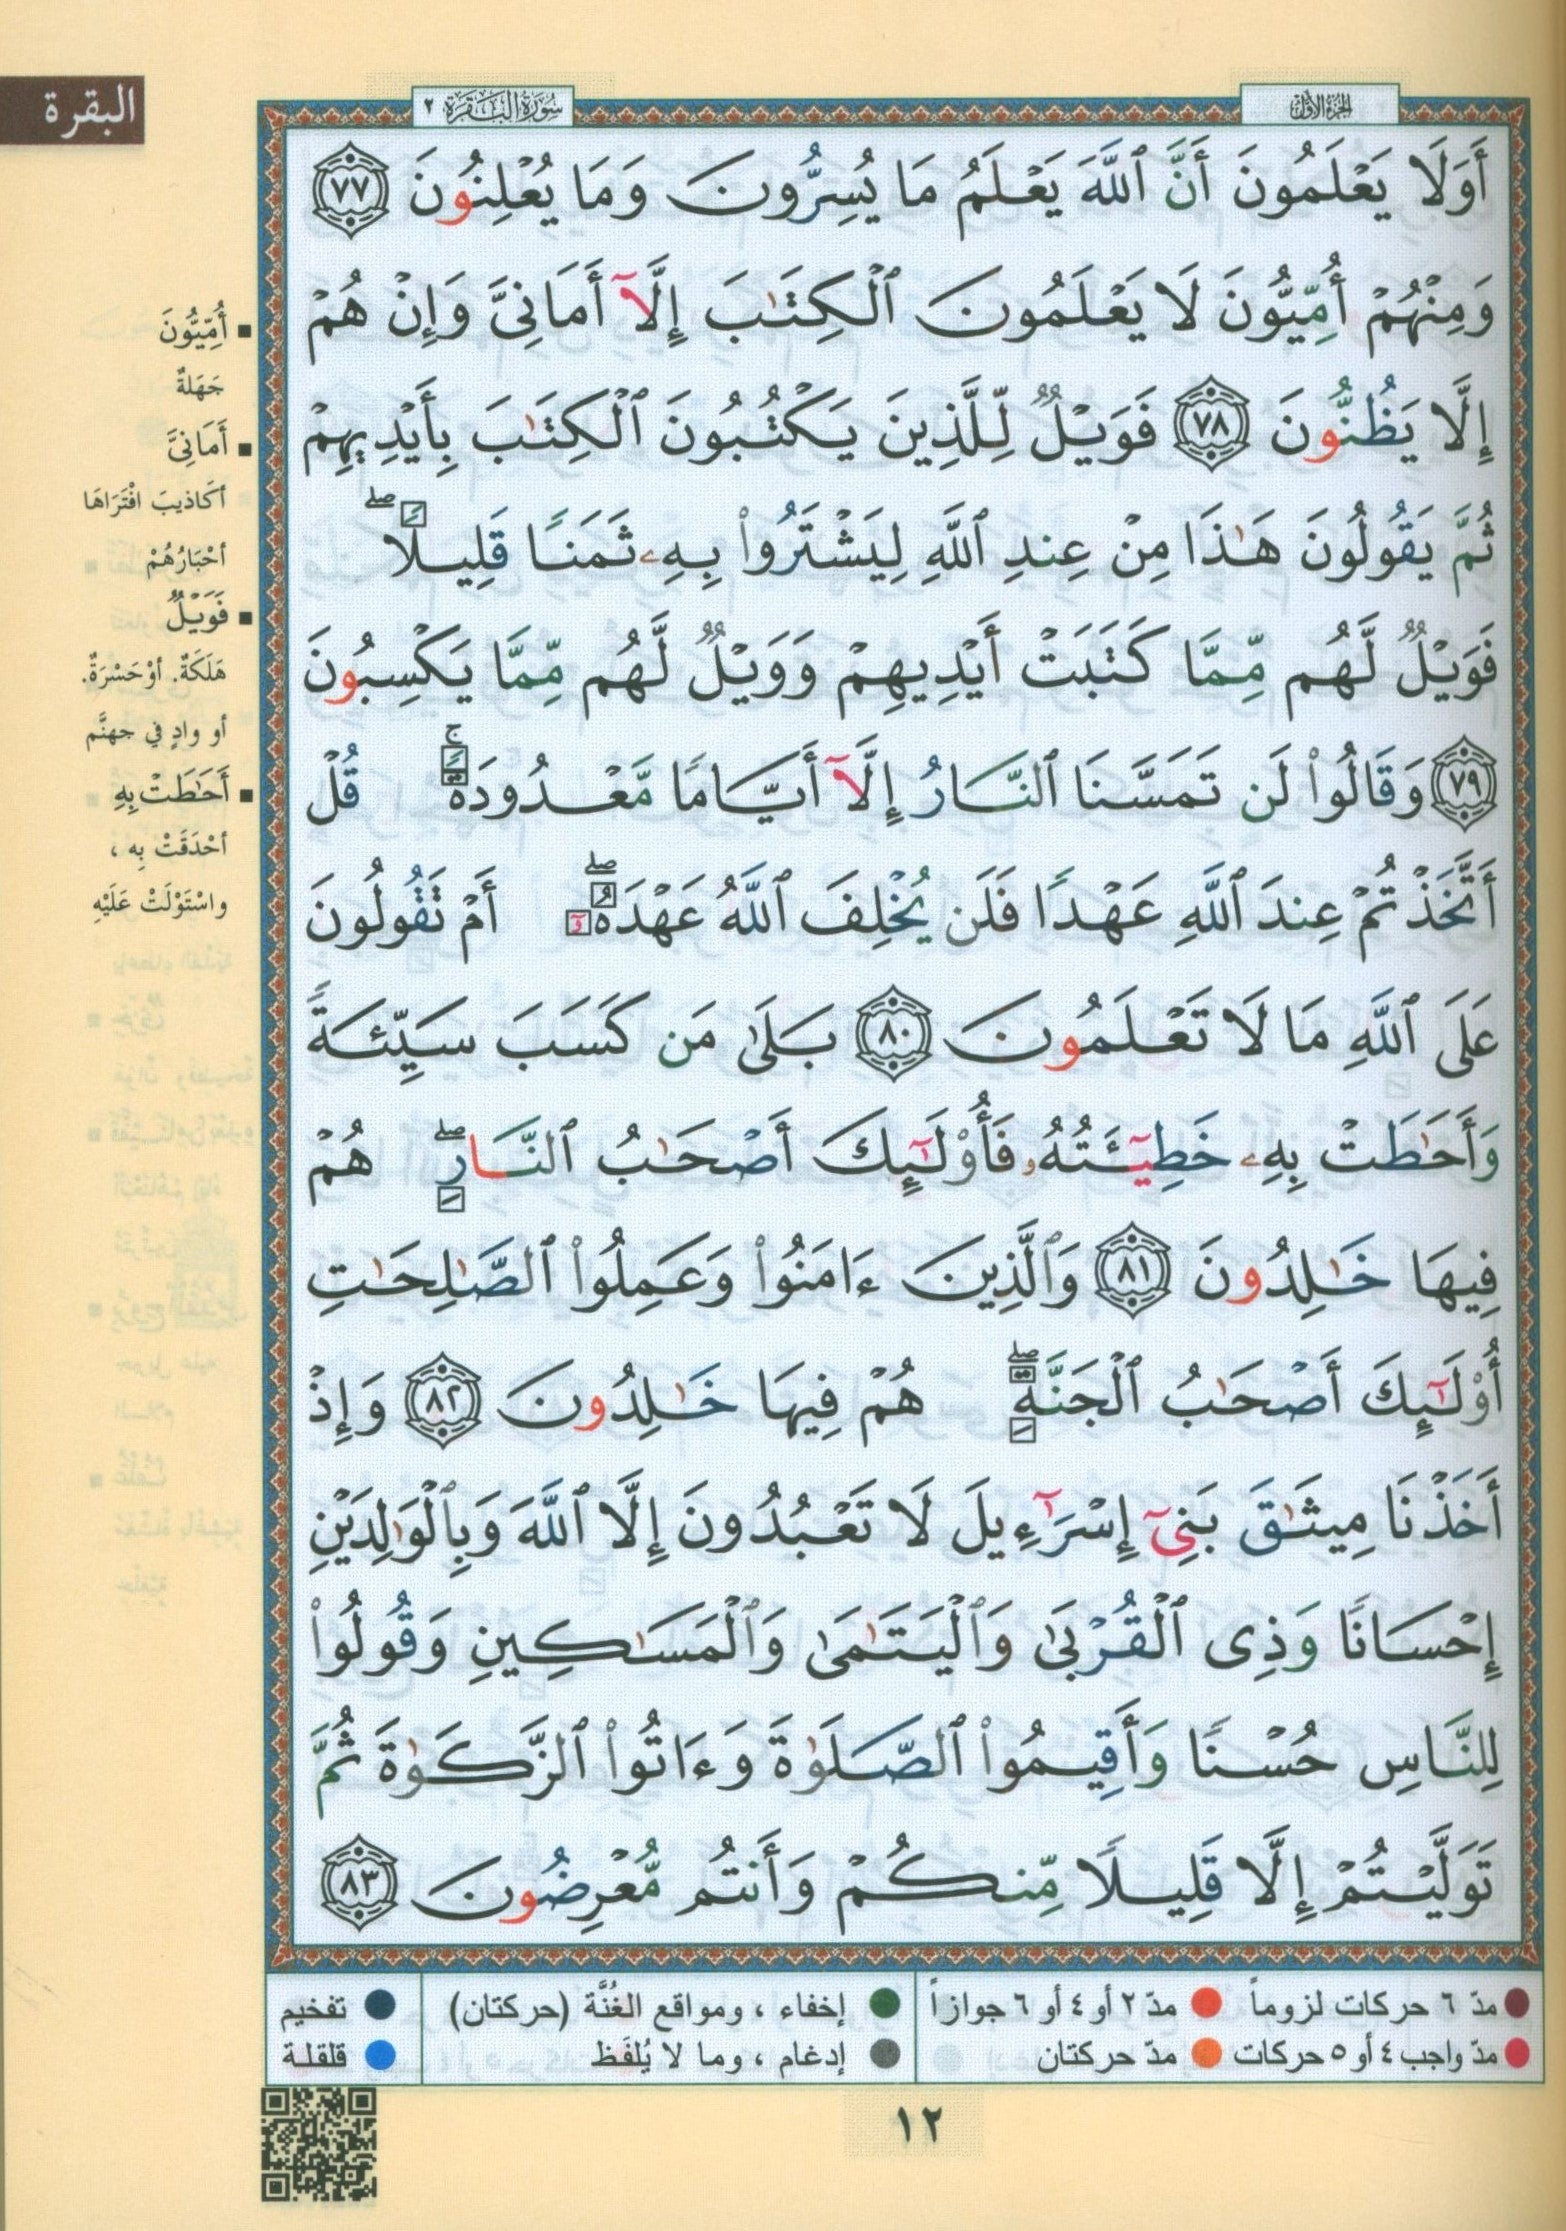 البقرة
سُورَةُ البَقَرَة ٢
الجُزءُ الأَوّلُ
أَوَلَا يَعْلَمُونَ أَنَّ ٱللَّهَ يَعْلَمُ مَا يُسِرُّونَ وَمَا يُعْلِنُونَ ٧٧
وَمِنْهُمْ أُمِّيُّونَ لَا يَعْلَمُونَ ٱلْكِتَٰبَ إِلَّآ أَمَانِىَّ وَإِنْ هُمْ
إِلَّا يَظُنُّونَ ٧٨ فَوَيْلٌ لِّلَّذِينَ يَكْتُبُونَ ٱلْكِتَٰبَ بِأَيْدِيهِمْ
ثُمَّ يَقُولُونَ هَٰذَا مِنْ عِندِ ٱللَّهِ لِيَشْتَرُوا۟ بِهِۦ ثَمَنًا قَلِيلًا ۖ
فَوَيْلٌ لَّهُم مِّمَّا كَتَبَتْ أَيْدِيهِمْ وَوَيْلٌ لَّهُم مِّمَّا يَكْسِبُونَ
٧٩ وَقَالُوا۟ لَن تَمَسَّنَا ٱلنَّارُ إِلَّآ أَيَّامًا مَّعْدُودَةً ۚ قُلْ
أَتَّخَذْتُمْ عِندَ ٱللَّهِ عَهْدًا فَلَن يُخْلِفَ ٱللَّهُ عَهْدَهُۥٓ ۖ أَمْ تَقُولُونَ
عَلَى ٱللَّهِ مَا لَا تَعْلَمُونَ ٨٠ بَلَىٰ مَن كَسَبَ سَيِّئَةً
وَأَحَٰطَتْ بِهِۦ خَطِيٓـَٔتُهُۥ فَأُو۟لَٰٓئِكَ أَصْحَٰبُ ٱلنَّارِ ۖ هُمْ
فِيهَا خَٰلِدُونَ ٨١ وَٱلَّذِينَ ءَامَنُوا۟ وَعَمِلُوا۟ ٱلصَّٰلِحَٰتِ
أُو۟لَٰٓئِكَ أَصْحَٰبُ ٱلْجَنَّةِ ۖ هُمْ فِيهَا خَٰلِدُونَ ٨٢ وَإِذْ
أَخَذْنَا مِيثَٰقَ بَنِىٓ إِسْرَٰٓءِيلَ لَا تَعْبُدُونَ إِلَّا ٱللَّهَ وَبِٱلْوَٰلِدَيْنِ
إِحْسَانًا وَذِى ٱلْقُرْبَىٰ وَٱلْيَتَٰمَىٰ وَٱلْمَسَٰكِينِ وَقُولُوا۟
لِلنَّاسِ حُسْنًا وَأَقِيمُوا۟ ٱلصَّلَوٰةَ وَءَاتُوا۟ ٱلزَّكَوٰةَ ثُمَّ
تَوَلَّيْتُمْ إِلَّا قَلِيلًا مِّنكُمْ وَأَنتُم مُّعْرِضُونَ ٨٣
أُمِّيُّونَ
جَهَلةٌ
أَمَانِىَّ
أكَاذيبَ افْتَرَاهَا
أحْبَارُهُمْ
فَوَيْلٌ
هَلَكَةٌ. أوْ حَسْرَةٌ.
أو وادٍ في جهنَّم
أَحَٰطَتْ بِهِ
أحْدَقَتْ بِهِ ،
واسْتَوْلَتْ عَلَيْهِ
مدّ ٦ حركات لزوماً
مدّ ٢ أو ٤ أو ٦ جوازاً
إخفاء ، ومواقع الغُنَّة (حركتان)
تفخيم
مدّ واجب ٤ أو ٥ حركات
مدّ حركتان
إدغام ، وما لا يُلفَظ
قلقلة
١٢